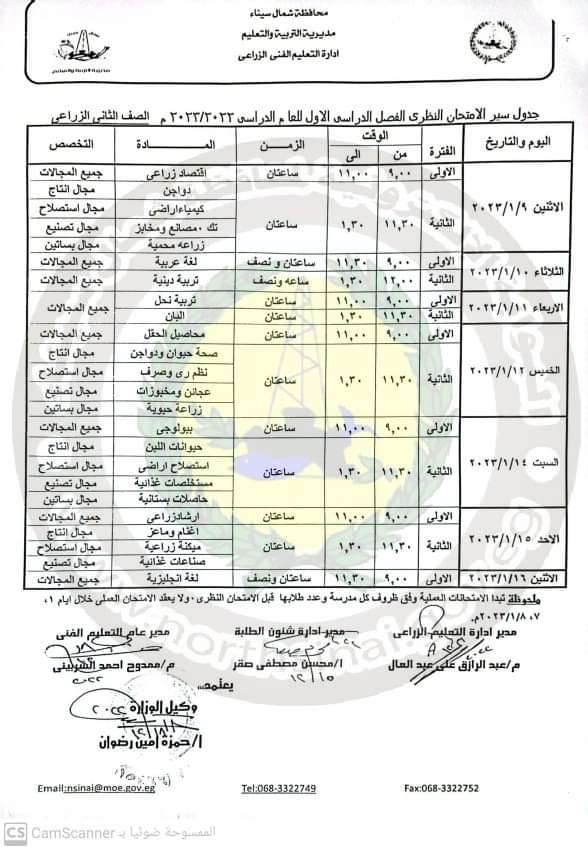 محافظة شمال سيناء
مديرية التربية والتعليم
ادارة التعليم الفنى الزراعى
جدول سير الامتحان النظرى الفصل الدراسى الاول للعام الدراسى ٢٠٢٣/٢٠٢٢ م الصف الثانى الزراعى
اليوم والتاريخ الفترة الوقت الزمن المادة التخصص
من الى
الاثنين ٢٠٢٣/١/٩ الاولى ٩,٠٠ ١١,٠٠ ساعتان اقتصاد زراعى جميع المجالات
الثانية ١١,٣٠ ١,٣٠ ساعتان دواجن مجال انتاج
كيمياء اراضى مجال استصلاح
تك ٠مصانع ومخابز مجال تصنيع
زراعه محمية مجال بساتين
الثلاثاء ٢٠٢٣/١/١٠ الاولى ٩,٠٠ ١١,٣٠ ساعتان و نصف لغة عربية جميع المجالات
الثانية ١٢,٠٠ ١,٣٠ ساعه ونصف تربية دينية جميع المجالات
الاربعاء ٢٠٢٣/١/١١ الاولى ٩,٠٠ ١١,٠٠ ساعتان تربية نحل جميع المجالات
الثانية ١١,٣٠ ١,٣٠ ساعتان البان
الخميس ٢٠٢٣/١/١٢ الاولى ٩,٠٠ ١١,٠٠ ساعتان محاصيل الحقل جميع المجالات
الثانية ١١,٣٠ ١,٣٠ ساعتان صحة حيوان ودواجن مجال انتاج
نظم رى وصرف مجال استصلاح
عجائن ومخبوزات مجال تصنيع
زراعة حيوية مجال بساتين
السبت ٢٠٢٣/١/١٤ الاولى ٩,٠٠ ١١,٠٠ ساعتان بيولوجى جميع المجالات
الثانية ١١,٣٠ ١,٣٠ ساعتان حيوانات اللبن مجال انتاج
استصلاح اراضى مجال استصلاح
مستخلصات غذائية مجال تصنيع
حاصلات بستانية مجال بساتين
الاحد ٢٠٢٣/١/١٥ الاولى ٩,٠٠ ١١,٠٠ ساعتان ارشادزراعى جميع المجالات
الثانية ١١,٣٠ ١,٣٠ ساعتان اغنام وماعز مجال انتاج
ميكنة زراعية مجال استصلاح
صناعات غذائية مجال تصنيع
الاثنين ٢٠٢٣/١/١٦ الاولى ٩,٠٠ ١١,٣٠ ساعتان ونصف لغة انجليزية جميع المجالات
ملحوظة تبدا الامتحانات العملية وفق ظروف كل مدرسة وعدد طلابها قبل الامتحان النظرى ٠ولا يعقد الامتحان العملى خلال ايام ١,
٢٠٢٣/١/٨٠٧م٠
مدير ادارة التعليم الزراعى مدير ادارة شئون الطلبة مدير عام التعليم الفنى
م/عبد الرازق على عبد العال ا/محسن مصطفى صقر م/ممدوح احمد الشربينى
يعتمد،،
وكيل الوزارة
ا/حمزة امين رضوان
Email:nsinai@moe.gov.eg Tel:068-3322749 Fax:068-3322752
CS CamScanner الممسوحة ضوئيا بـ